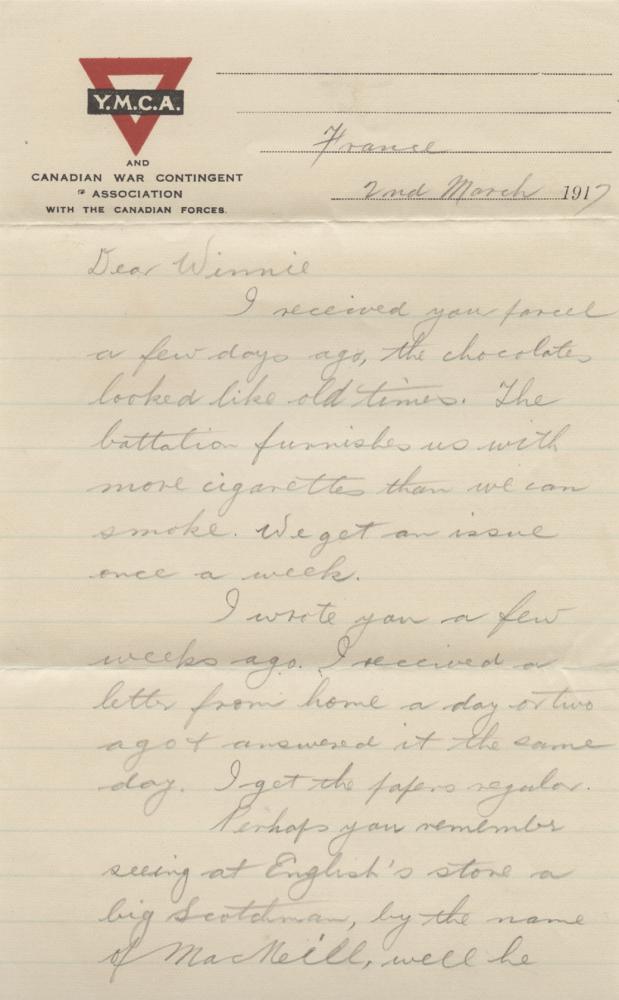 Y.M.C.A.
AND
CANADIAN WAR CONTINGENT
ASSOCIATION
WITH THE CANADIAN FORCES.
France
2nd March 1917
Dear Winnie
I received you parcel
a few days ago, the chocolates
looked like old times. The
battation furnishes us with
more cigarettes than we can
smoke. We get an issue
once a week.
I wrote you a few
weeks ago. I received a
letter from home a day or two
ago & answered it the same
day. I get the papers regular.
Perhaps you remember
seeing at English's store a
big Scotchman, by the name
of MacNeill, well he